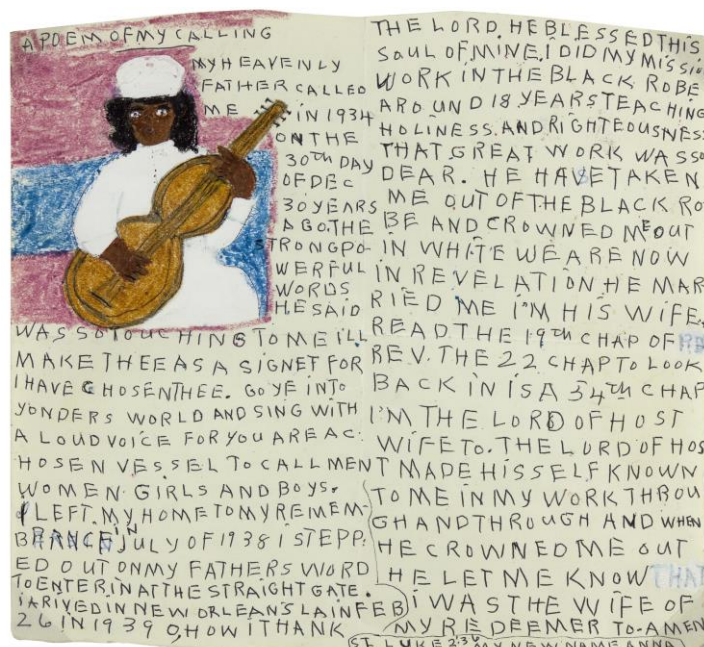 A POEM OF MY CALLING
MY HEAVENLY
FATHER CALLED
ME IN 1934
ON THE
30TH DAY
OF DEC
30 YEARS
AGO. THE
STRONG PO
WERFUL
WORDS
HE SAID
WAS SO TOUCHING TO ME I'LL
MAKE THEE AS A SIGNET FOR
I HAVE CHOSEN THEE. GO YE INTO
YONDERS WORLD AND SING WITH
A LOUD VOICE FOR YOU ARE A C
HOSEN VESSEL TO CALL MEN
WOMEN GIRLS AND BOYS.
I LEFT MY HOME TO MY REMEM-
BRANCE IN JULY OF 1938 I STEPP-
ED OUT ON MY FATHERS WORD
TO ENTER IN AT THE STRAIGHT GATE.
I ARIVED IN NEW ORLEANS LA IN FEB
26 IN 1939 O, HOW I THANK
THE LORD. HE BLESSED THIS
SOUL OF MINE. I DID MY MISSIO
WORK IN THE BLACK ROBE
AROUND 18 YEARS TEACHING
HOLINESS. AND RIGHTEOUSNES
THAT GREAT WORK WAS SO
DEAR. HE HAS TAKEN
ME OUT OF THE BLACK RO
BE AND CROWNED ME OUT
IN WHITE WE ARE NOW
IN REVELATION HE MAR
RIED ME I'M HIS WIFE.
READ THE 19TH CHAP OF
REV. THE 22 CHAP TO LOOK
BACK IN ISA 34TH CHAP
I'M THE LORD OF HOST
WIFE TO. THE LORD OF HOS
T MADE HISSELF KNOWN
TO ME IN MY WORK THROU
GH AND THROUGH AND WHEN
HE CROWNED ME OUT
HE LET ME KNOW THAT
I WAS THE WIFE OF
MY REDEEMER TO-AMEN
ST. LUKE 2:36 MY NEW NAME ANNA